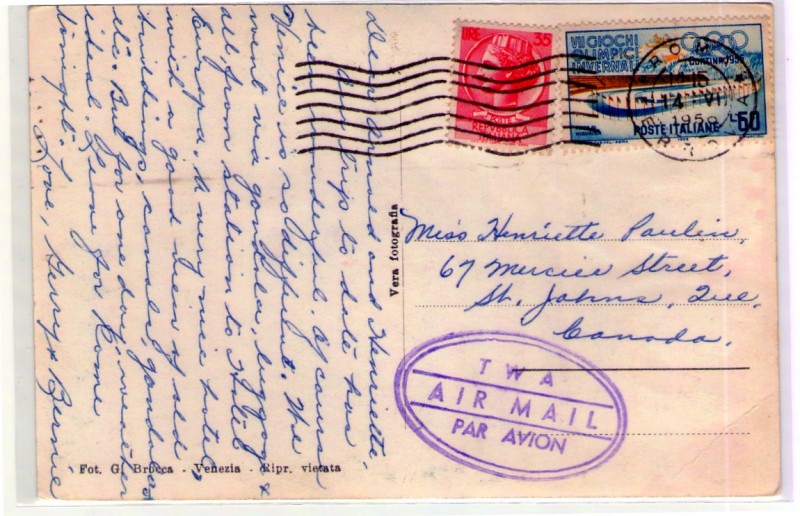 Dear Arnold and Henriette-
Our trip to date has
been wonderful. Of course
Venice is so different. We
went via gondola, luggage &
all from station to Hotel
Europa. A very nice hotel
with a good view of old
buildings, canals, gondolas
etc. But for one day, weather
ideal. Leave for Rome
tonight.
Love, Gerry & Bernie
Fot. G. Brocca - Venezia - Ripr. vietata
Vera fotografia
LIRE 35
VII GIOCHI
OLIMPICI
INVERNALI
CORTINA 1956
POSTE ITALIANE L. 50
ROMA
14 VI
195
Miss Henriette Paulin,
67 Mercier Street,
St. Johns, Que,
Canada.
TWA
AIR MAIL
PAR AVION